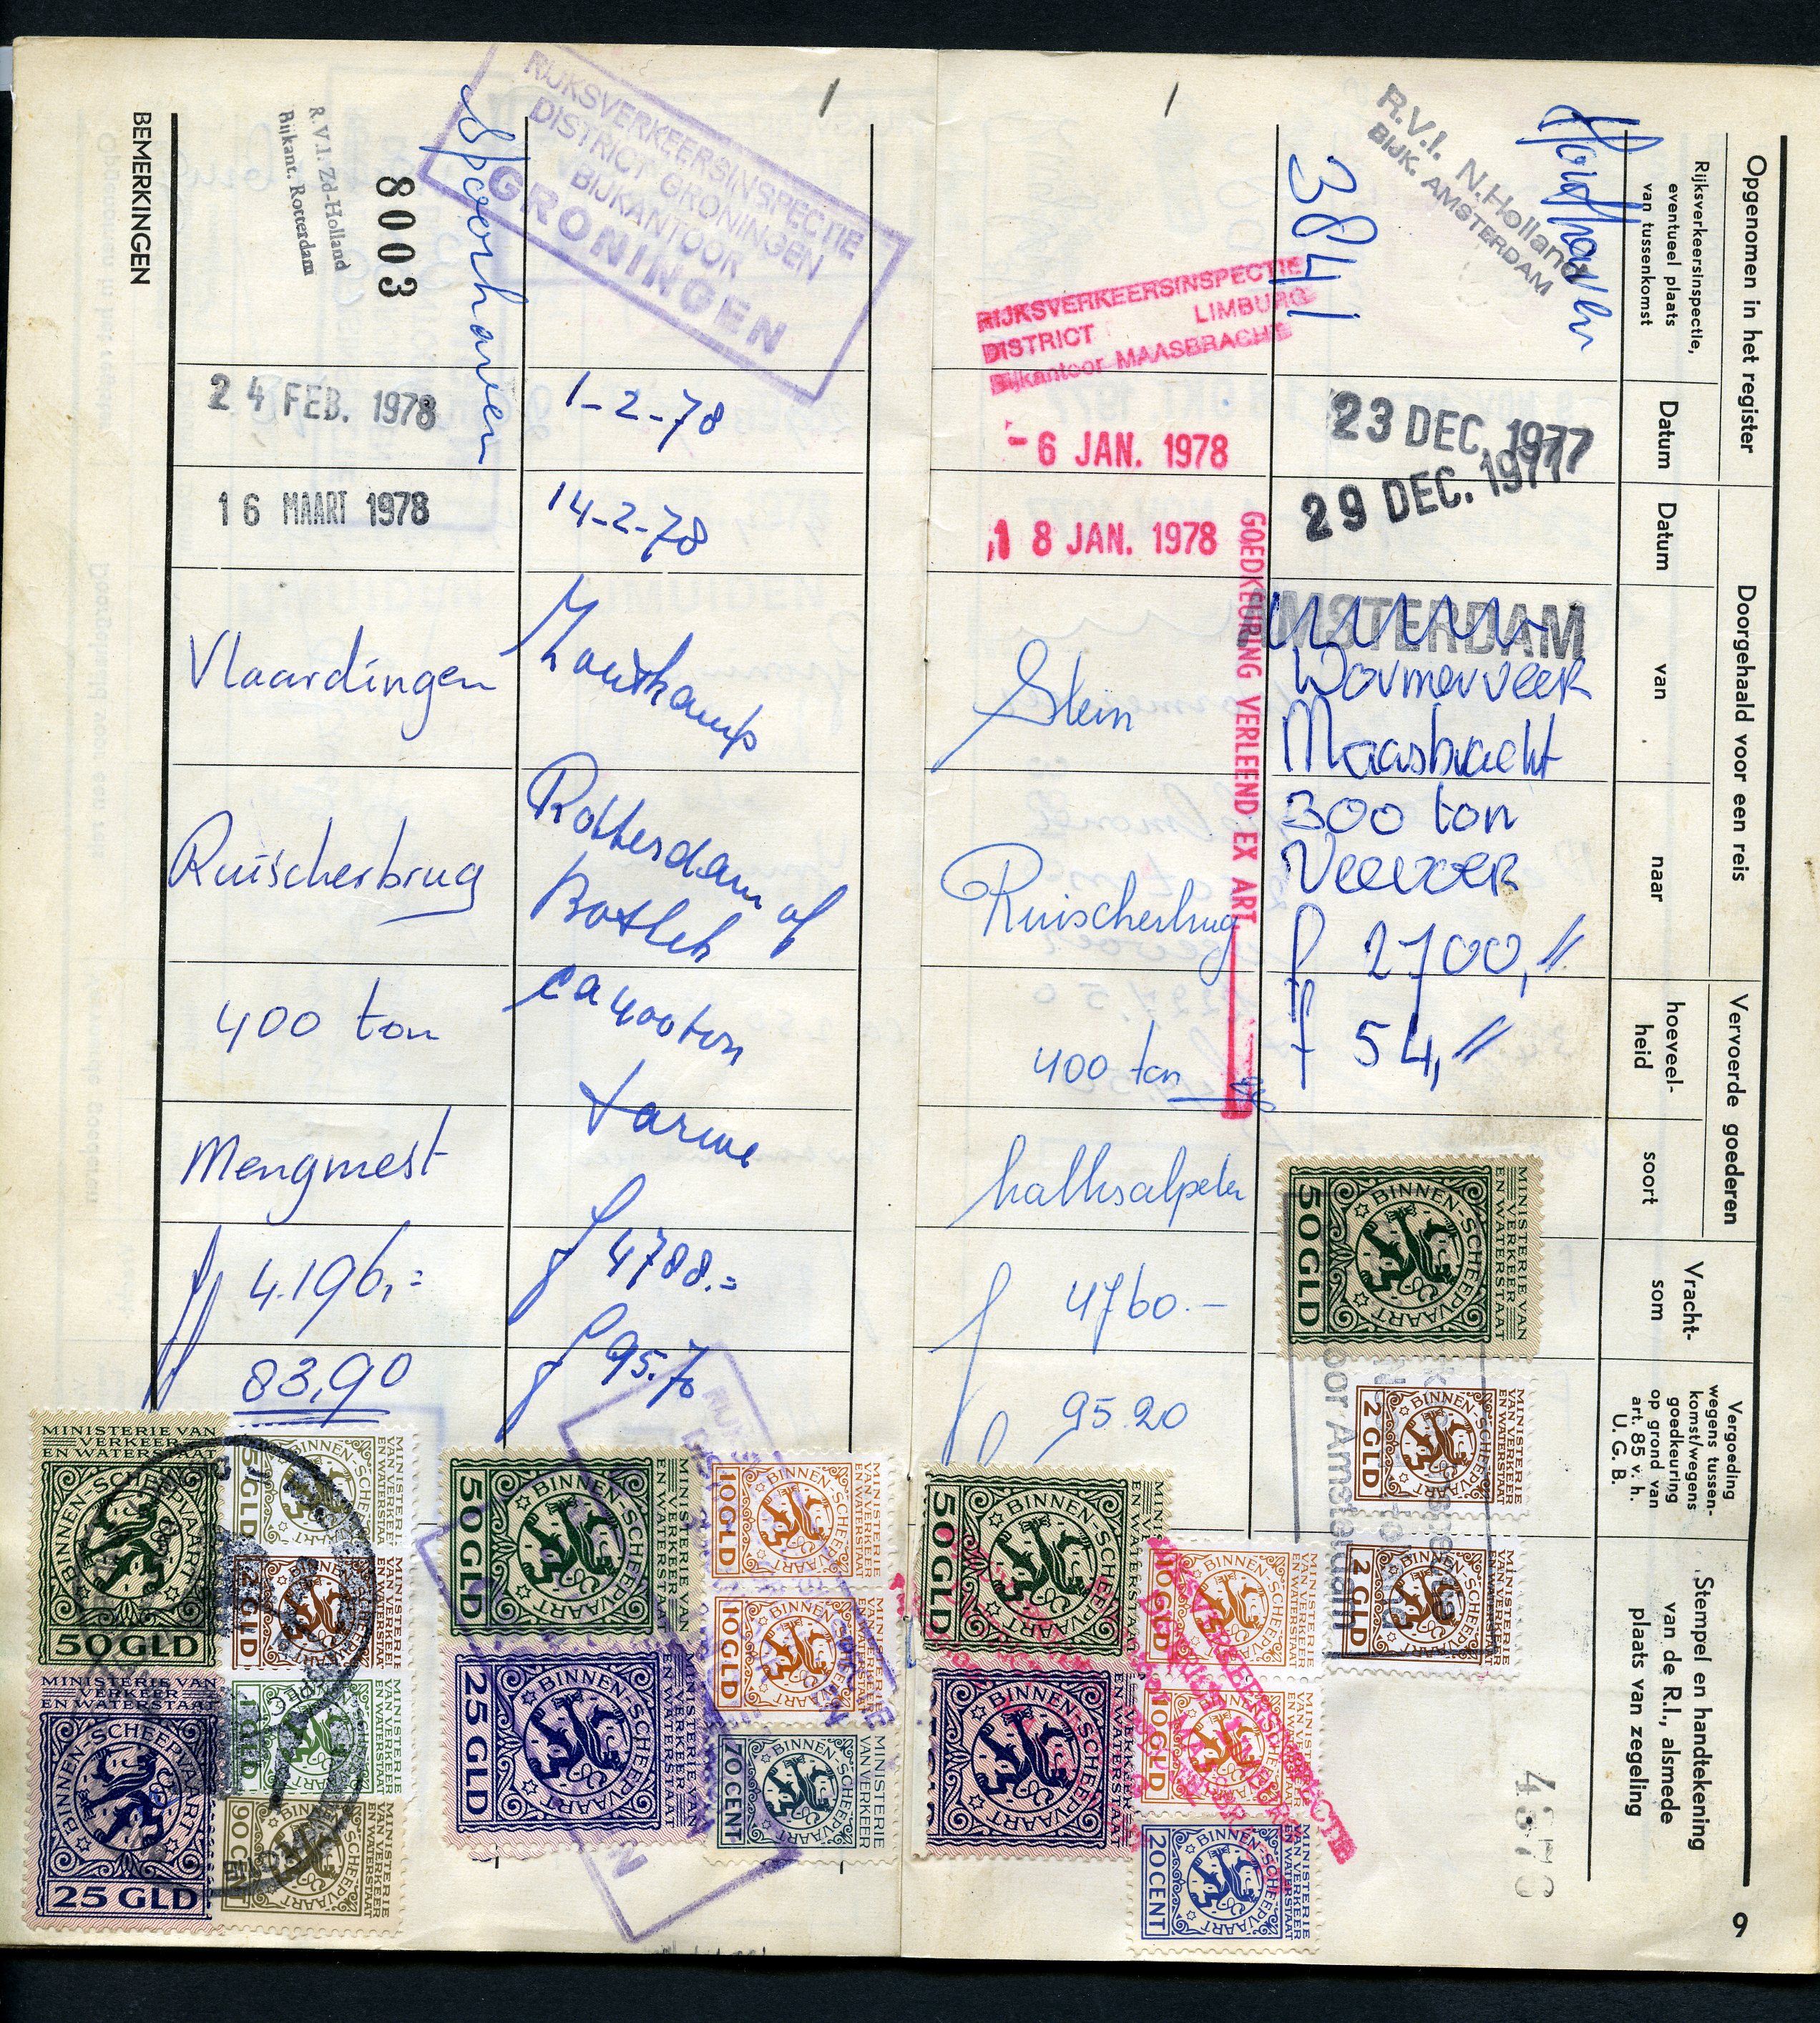 9
Opgenomen in het register
Rijksverkeersinspectie,
eventueel plaats
van tussenkomst
Datum
Doorgehaald voor een reis
Datum
van
naar
Vervoerde goederen
hoeveel-
heid
soort
Vracht-
som
Vergoeding
wegens tussen-
komst/wegens
goedkeuring
op grond van
art. 85 v. h.
U. G. B.
Stempel en handtekening
van de R.I., alsmede
plaats van zegeling
R.V.I. N.Holland
BIJK. AMSTERDAM
3841
23 DEC. 1977
29 DEC. 1977
AMSTERDAM
Wormerveer
Maasbracht
300 ton
Veevoer
f 2700,"
f 54,"
MINISTERIE VAN
VERKEER
EN WATERSTAAT
BINNEN-SCHEEPVAART
50 GLD
MINISTERIE
VAN VERKEER
EN WATERSTAAT
BINNEN-SCHEEPVAART
2 GLD
MINISTERIE
VAN VERKEER
EN WATERSTAAT
BINNEN-SCHEEPVAART
2 GLD
RIJKSVERKEERSINSPECTIE
DISTRICT LIMBURG
Bijkantoor MAASBRACHT
- 6 JAN. 1978
1 8 JAN. 1978
GOEDKEURING VERLEEND EX ART.
Stein
Ruischerbrug
400 ton
kalksalpeter
f 4760.-
f 95.20
MINISTERIE VAN
VERKEER
EN WATERSTAAT
BINNEN-SCHEEPVAART
50 GLD
BINNEN-SCHEEPVAART
MINISTERIE
VAN VERKEER
EN WATERSTAAT
BINNEN-SCHEEPVAART
10 GLD
MINISTERIE
VAN VERKEER
EN WATERSTAAT
BINNEN-SCHEEPVAART
10 GLD
MINISTERIE
VAN VERKEER
EN WATERSTAAT
BINNEN-SCHEEPVAART
20 CENT
RIJKSVERKEERSINSPECTIE
DISTRICT GRONINGEN
BIJKANTOOR
GRONINGEN
1-2-78
14-2-78
Zoutkamp
Rotterdam of
Botlek
ca 400 ton
tarwe
f 4788.=
f 95.70
MINISTERIE VAN
VERKEER
EN WATERSTAAT
BINNEN-SCHEEPVAART
50 GLD
MINISTERIE VAN
VERKEER
EN WATERSTAAT
BINNEN-SCHEEPVAART
25 GLD
MINISTERIE
VAN VERKEER
EN WATERSTAAT
BINNEN-SCHEEPVAART
10 GLD
MINISTERIE
VAN VERKEER
EN WATERSTAAT
BINNEN-SCHEEPVAART
10 GLD
MINISTERIE
VAN VERKEER
EN WATERSTAAT
BINNEN-SCHEEPVAART
70 CENT
Spoorhaven
8003
R.V.I. Zd-Holland
Bijkant. Rotterdam
24 FEB. 1978
16 MAART 1978
Vlaardingen
Ruischerbrug
400 ton
Mengmest
f 4.196,=
f 83,90
MINISTERIE VAN
VERKEER
EN WATERSTAAT
BINNEN-SCHEEPVAART
50 GLD
MINISTERIE VAN
VERKEER
EN WATERSTAAT
BINNEN-SCHEEPVAART
25 GLD
MINISTERIE
VAN VERKEER
EN WATERSTAAT
BINNEN-SCHEEPVAART
5 GLD
MINISTERIE
VAN VERKEER
EN WATERSTAAT
2 GLD
MINISTERIE
VAN VERKEER
EN WATERSTAAT
1 GLD
MINISTERIE
VAN VERKEER
EN WATERSTAAT
90 CENT
BEMERKINGEN